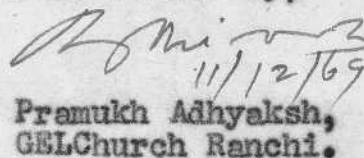 11/12/69
Pramukh Adhyaksh,
GELChurch Ranchi.